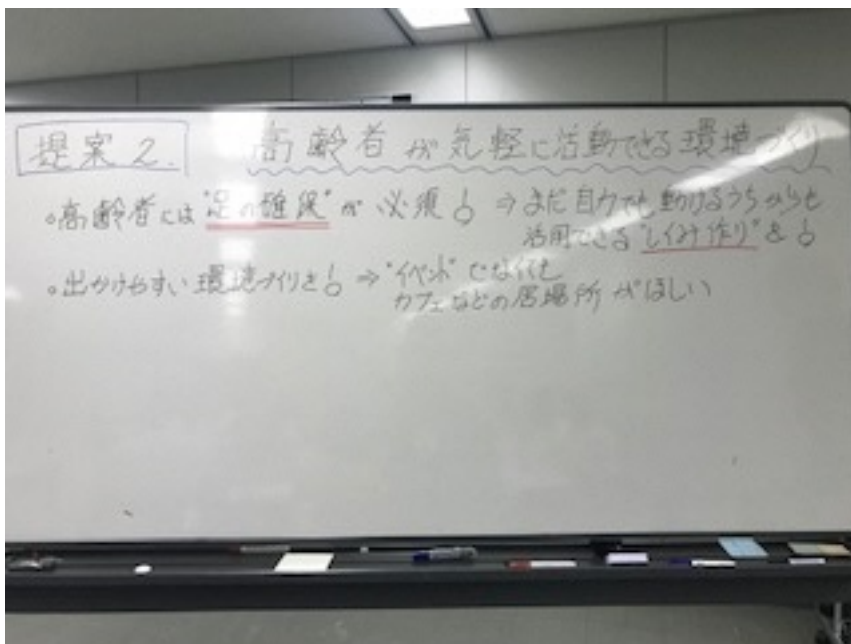 提案 2. 高齢者が気軽に活動できる環境づくり
。高齢者には"足の確保"が必須! ⇒ まだ自力でも動けるうちからも
活用できる"しくみ作り"を!
。出かけやすい環境づくりを! ⇒ "イベント"でなくても
カフェなどの居場所がほしい